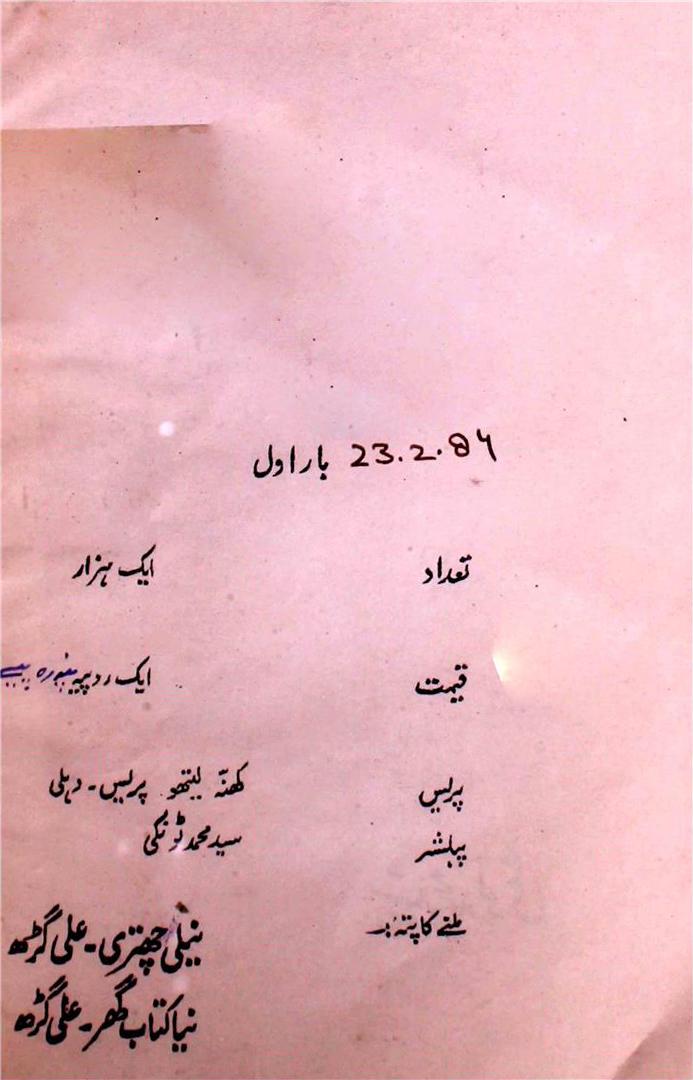 بار اول 23.2.84
تعداد ایک ہزار
قیمت ایک روپیہ پندرہ پیسے
پریس کھنّہ لیتھو پریس۔ دہلی
پبلشر سید محمد ٹونکی
ملنے کا پتہ:۔
نیلی چھتری۔ علی گڑھ
نیا کتاب گھر۔ علی گڑھ